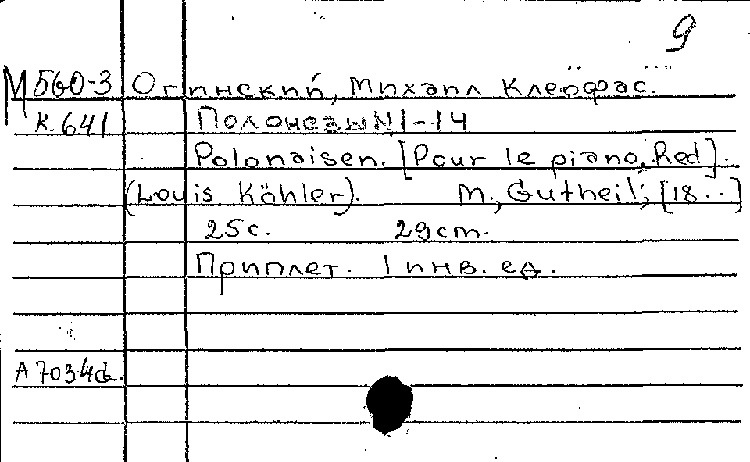 9
М 560-3 Огинский, Михаил Клеофас.
К 641 Полонезы №1-14
Polonaisen. [Pour le piano, Red].
(Louis Köhler). М., Gutheil, [18..]
25 с. 29 cm.
Приплет. 1 инв. ед.
А 7034